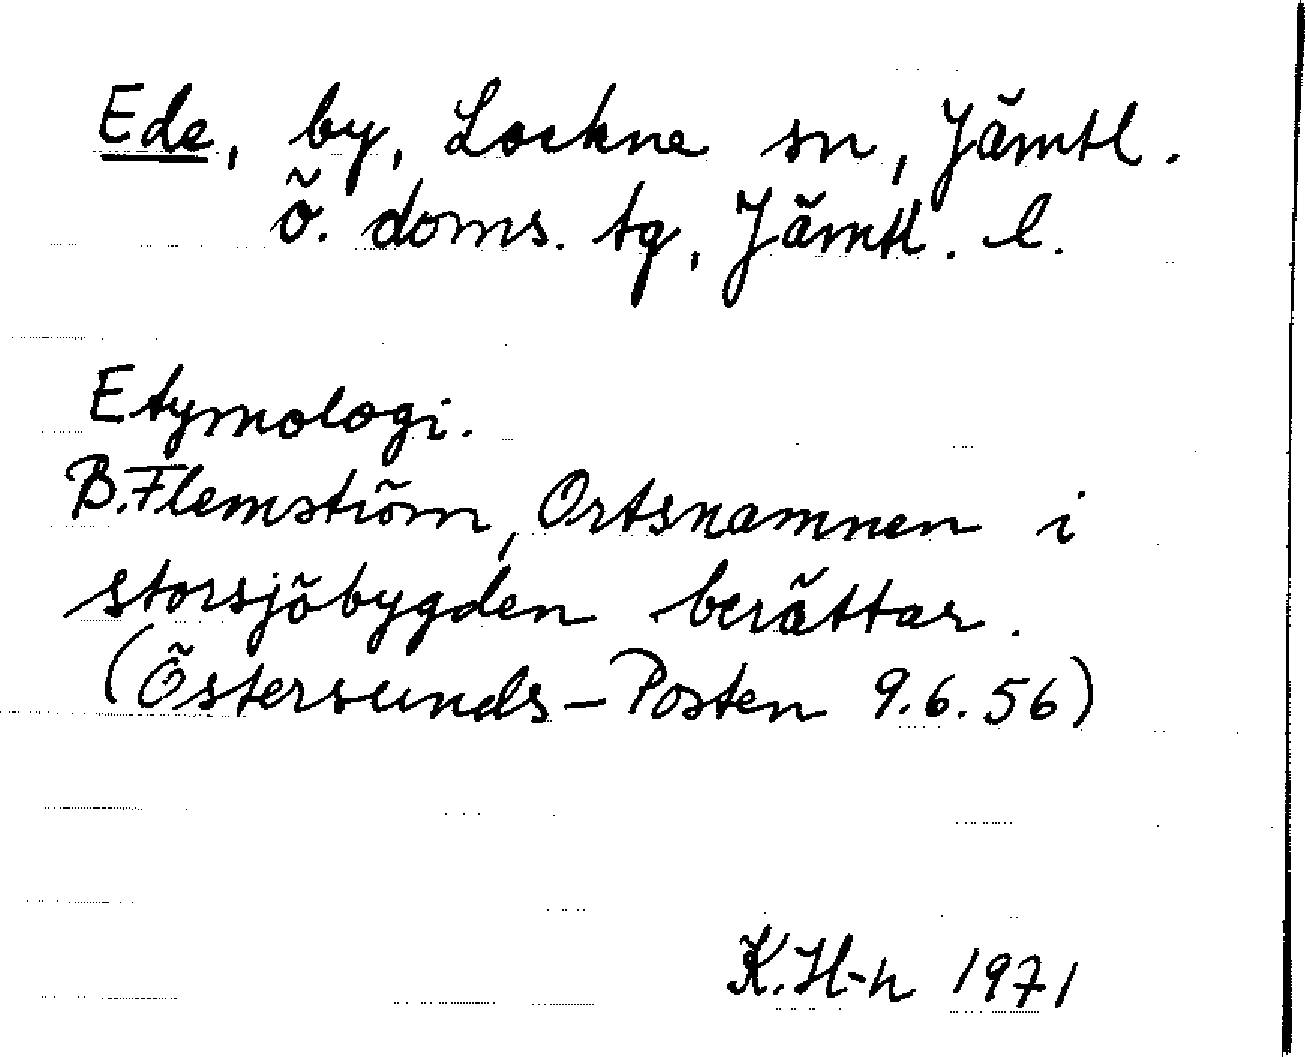 Ede, by, Lockne sn, Jämtl.
ö. doms. tg, Jämtl. l.
Etymologi.
B. Flemström, Ortsnamnen i
storsjöbygden berättar.
(Östersunds-Posten 9.6.56)
K.H-n 1971